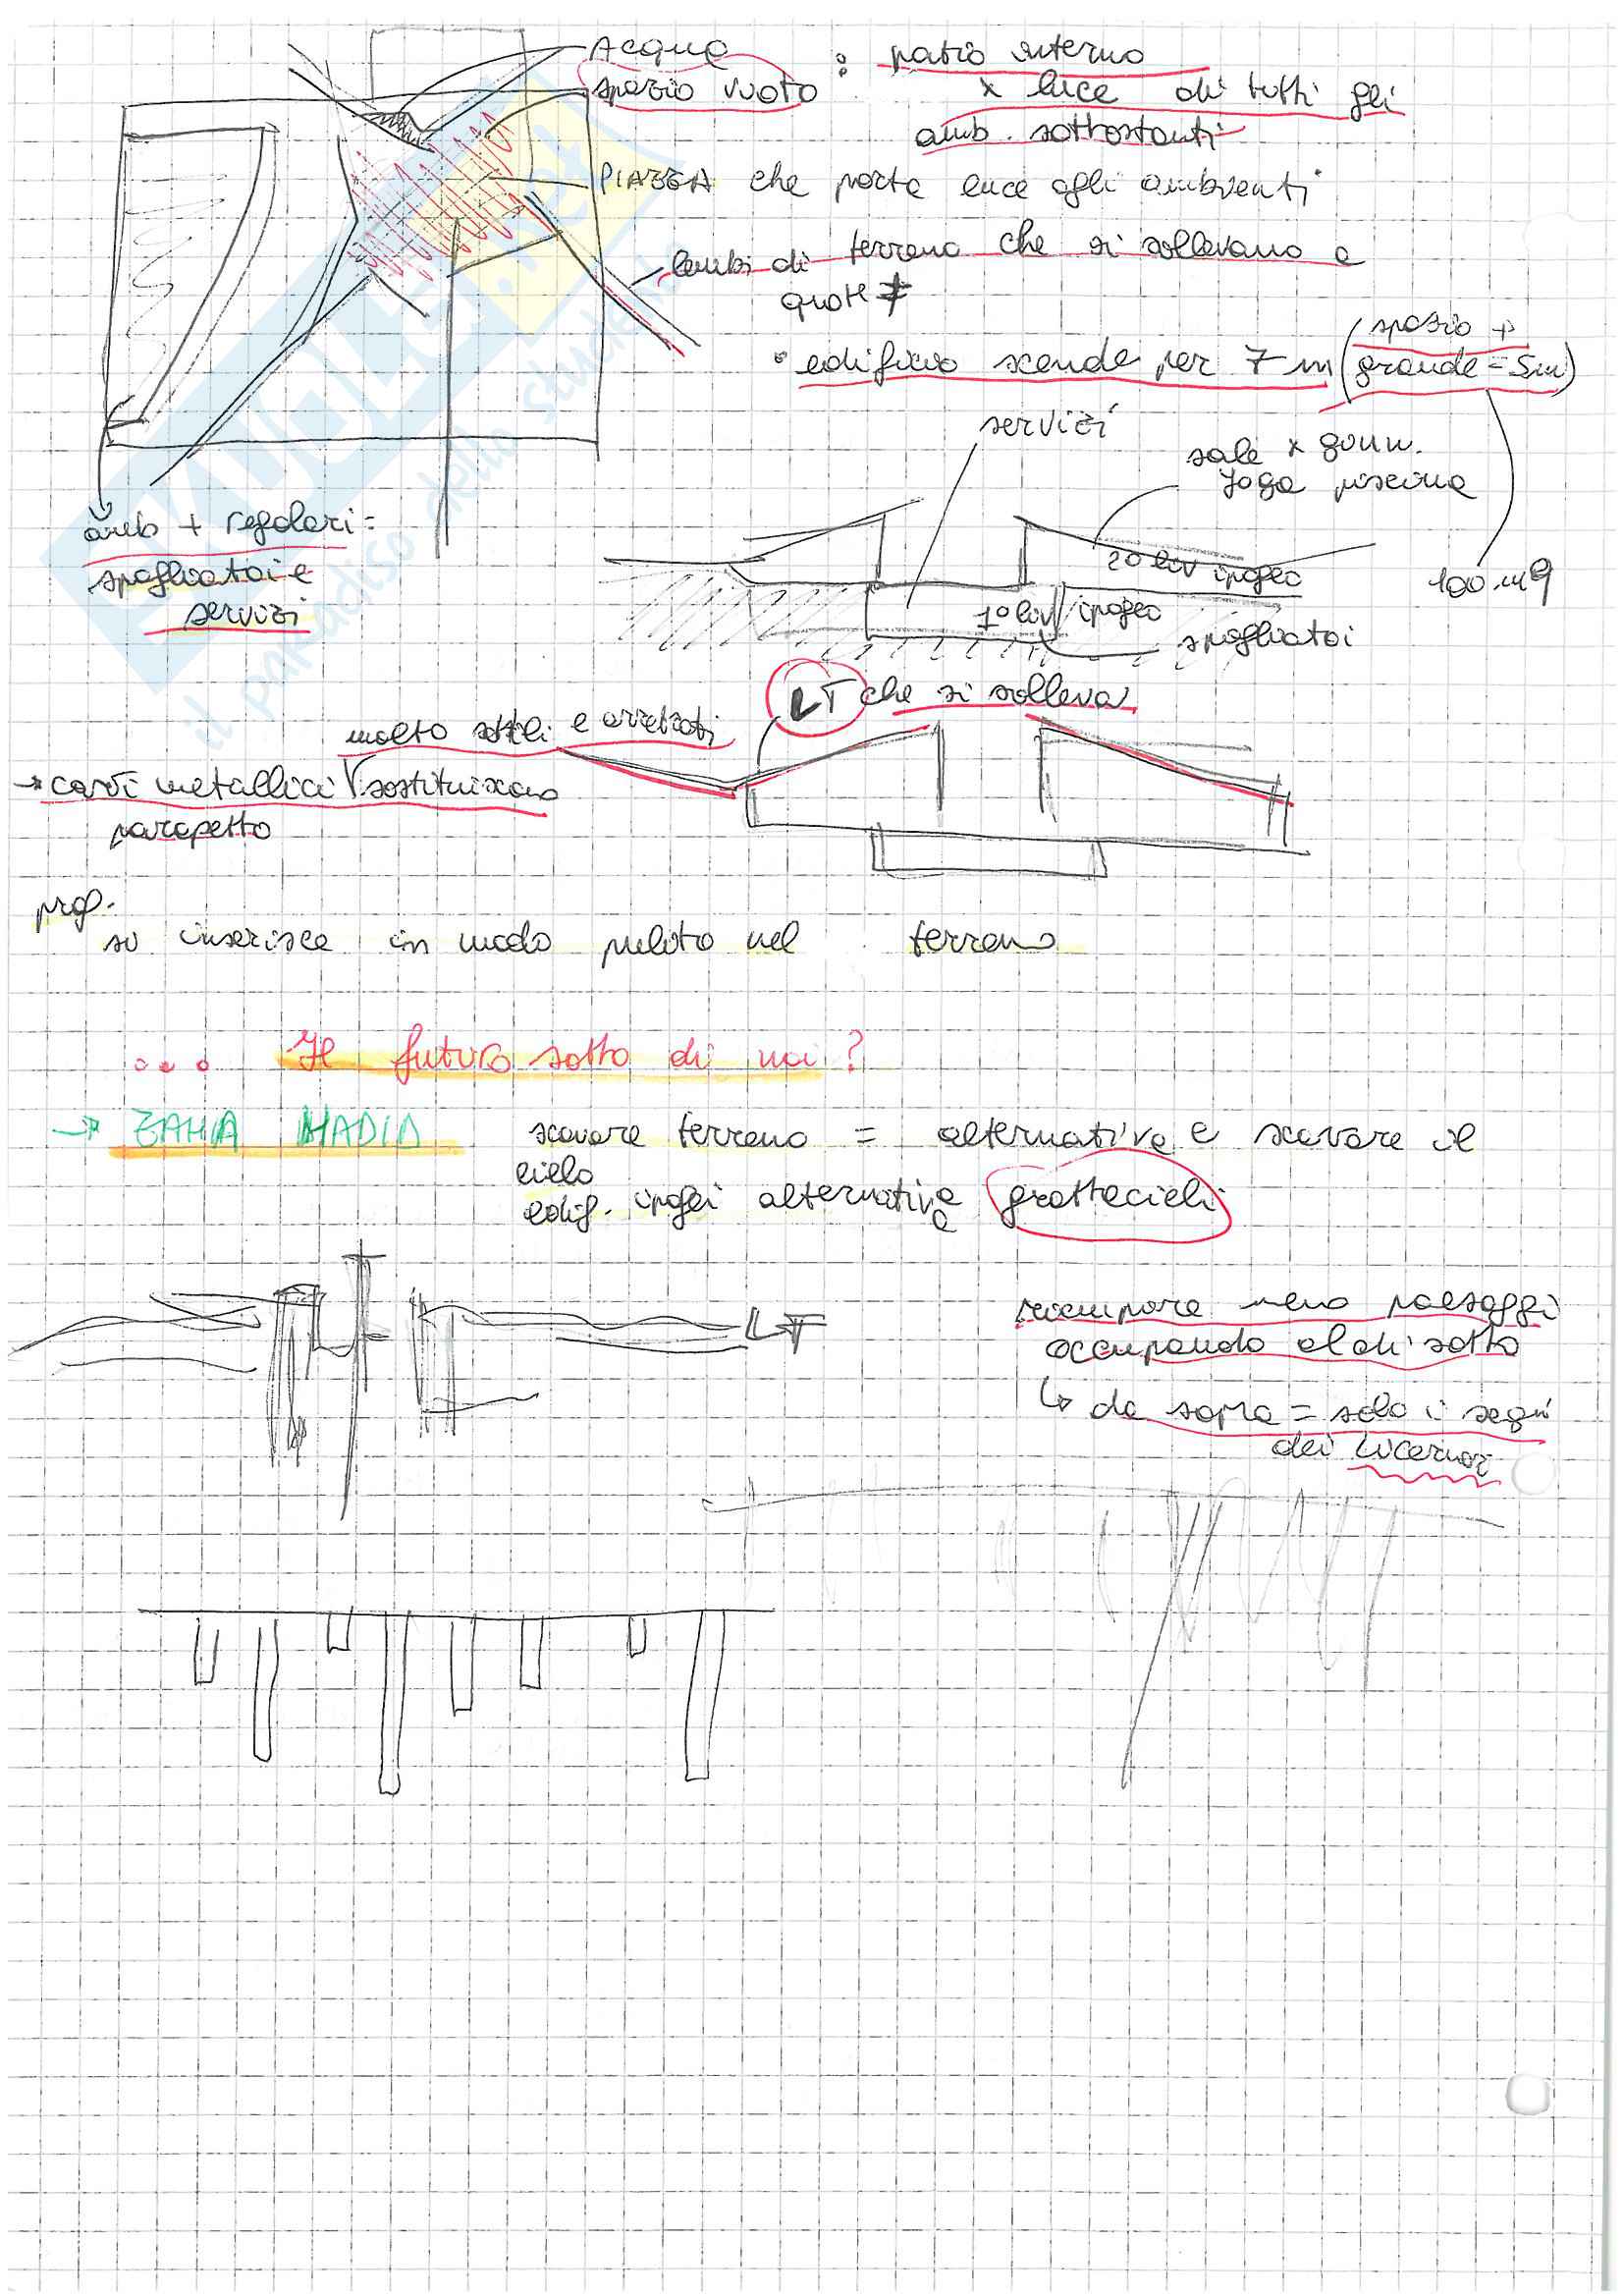 Acqua
spazio vuoto : patio interno
x luce di tutti gli
amb. sottostanti
PIAZZA che porta luce agli ambienti
lembi di terreno che si sollevano a
quote ≠
• edificio scende per 7 m (spazio +
grande = 5m)
100 mq
servizi
sale x ginn.
yoga piscina
amb + regolari =
spogliatoi e
servizi
2o liv ipogeo
1o liv ipogeo
spogliatoi
LT che si solleva
molto sottili e arretrati
→ cavi metallici sostituiscono
parapetto
prog.
si inserisce in modo pulito nel terreno
... Il futuro sotto di noi?
→ ZAHA HADID scavare terreno = alternativa e scavare il
cielo
edif. ipogei alternativa a grattacieli
LT
occupando al di sotto
↳ da sopra = solo i segni
dei lucernai
il paradiso dello studente